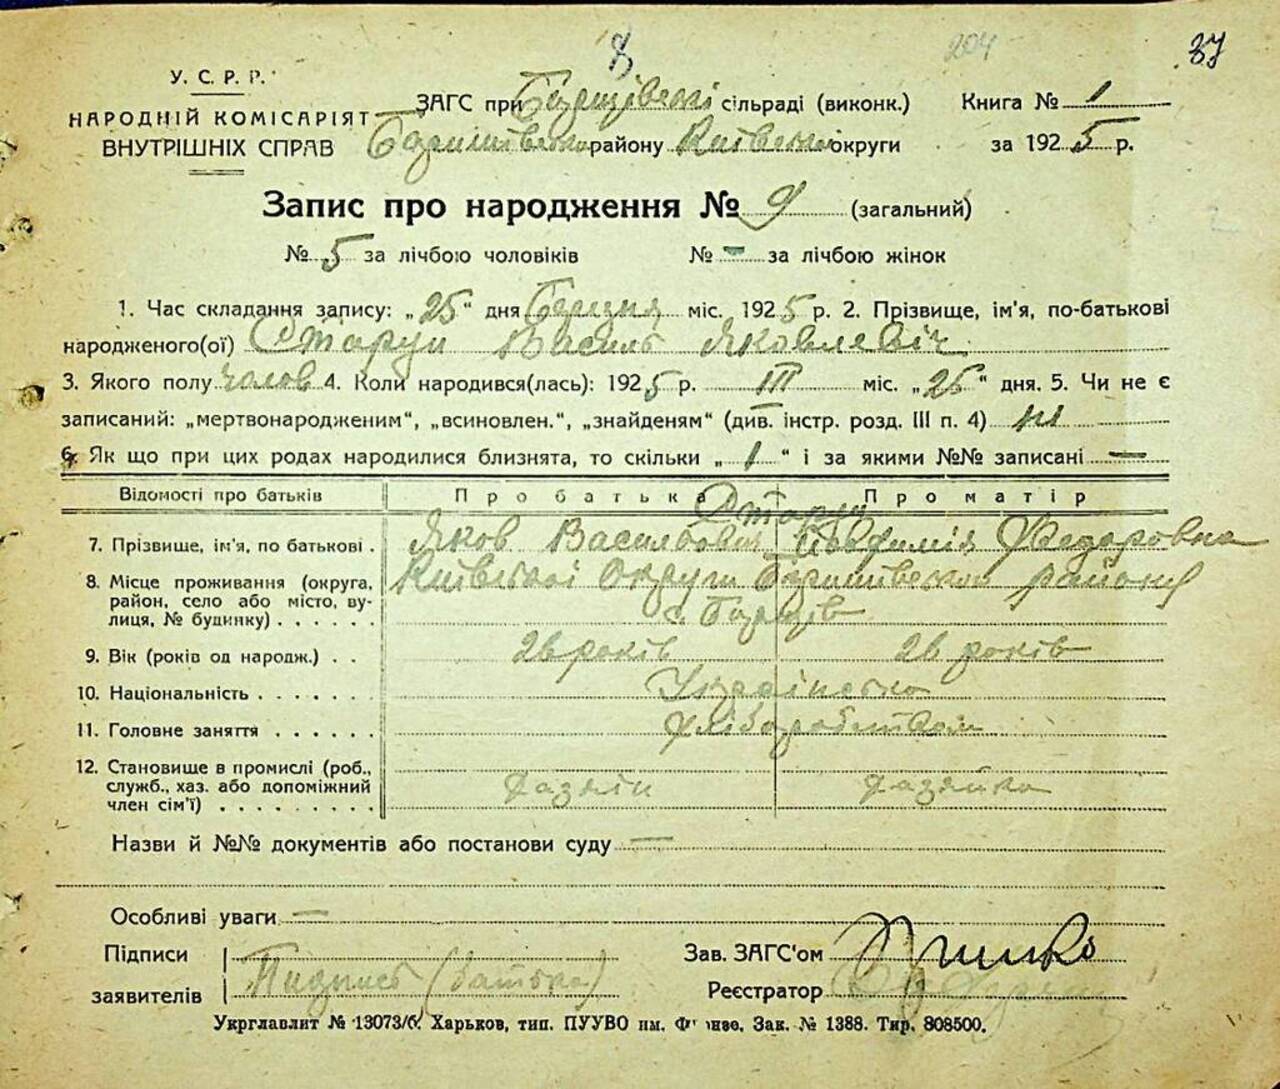 8 204 37
У. С. Р. Р.
НАРОДНІЙ КОМІСАРІЯТ
ВНУТРІШНІХ СПРАВ
ЗАГС при Борщівські сільраді (виконк.) Книга № 1
Баришівсько району Київсько округи за 1925 р.
Запис про народження № 9 (загальний)
№ 5 за лічбою чоловіків № – за лічбою жінок
1. Час складання запису: „25“ дня Берцня міс. 1925 р. 2. Прізвище, ім'я, по-батькові
народженого(ої) Василь Яковлевіч
3. Якого полу чолов 4. Коли народився(лась): 1925 р. III міс. „25“ дня. 5. Чи не є
записаний: „мертвонародженим“, „всиновлен.“, „знайденям“ (див. інстр. розд. III п. 4) ні
6. Як що при цих родах народилися близнята, то скільки „1“ і за якими №№ записані —
Відомості про батьків Про батька Про матір
7. Прізвище, ім'я, по батькові . Яков Васильович Федоровна
8. Місце проживання (округа, Київської Округи Баришівської району
район, село або місто, ву-
лиця, № будинку) . . . . . . с. Борщів
9. Вік (років од народж.) . . 26 років 26 років
10. Національність . . . . . . . Українська
11. Головне заняття . . . . . . Хліборобством
12. Становище в промислі (роб.,
служб., хаз. або допоміжний хазяін хазяйка
член сім'ї) . . . . . . . . .
Назви й №№ документів або постанови суду —
Особливі уваги —
Підписи
заявителів Підпис (батька)
Зав. ЗАГС'ом
Реєстратор
Укрглавліт № 13073/6. Харьков, тип. ПУУВО им. Фрунзе. Зак. № 1388. Тир. 808500.